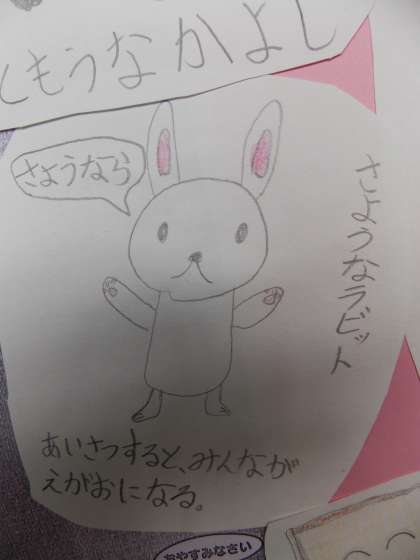 くもうなかよし
さようなら
さようなラビット
あいさつすると、みんなが
えがおになる。
おやすみなさい